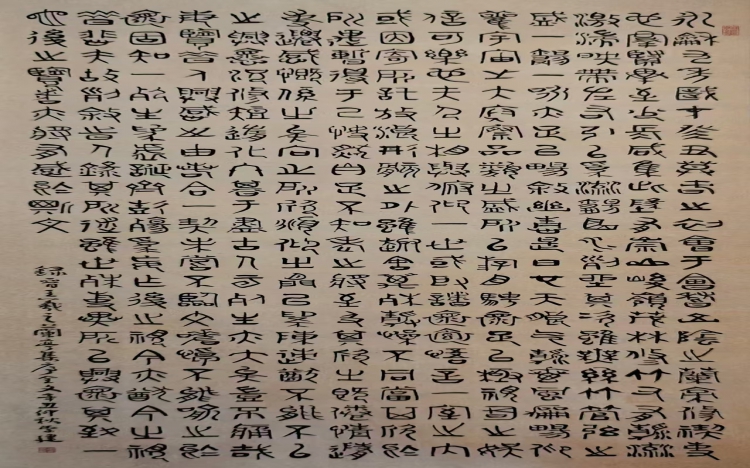 永和九年歲在癸丑暮春之初會于會稽山陰之蘭亭修禊事
也羣賢畢至少長咸集此地有崇山峻嶺茂林修竹又有清流
激湍映帶左右引以為流觴曲水列坐其次雖無絲竹管弦之
盛一觴一詠亦足以暢敘幽情是日也天朗氣清惠風和暢仰
觀宇宙之大俯察品類之盛所以游目騁懷足以極視聽之娛
信可樂也夫人之相與俯仰一世或取諸懷抱悟言一室之內
或因寄所託放浪形骸之外雖趣舍萬殊靜躁不同當其欣於
所遇暫得于己快然自足不知老之將至及其所之既倦情隨
事遷感慨係之矣向之所欣俛仰之間已為陳迹猶不能不以
之興懷況修短隨化終期于盡古人云死生亦大矣豈不痛哉
每覽昔人興感之由若合一契未嘗不臨文嗟悼不能喻之於
懷固知一死生為虛誕齊彭殤為妄作後之視今亦猶今之視
昔悲夫故列敘時人錄其所述雖世殊事異所以興懷其致一
也後之覽者亦將有感於斯文
錄晉王羲之蘭亭集序全文辛丑仲秋